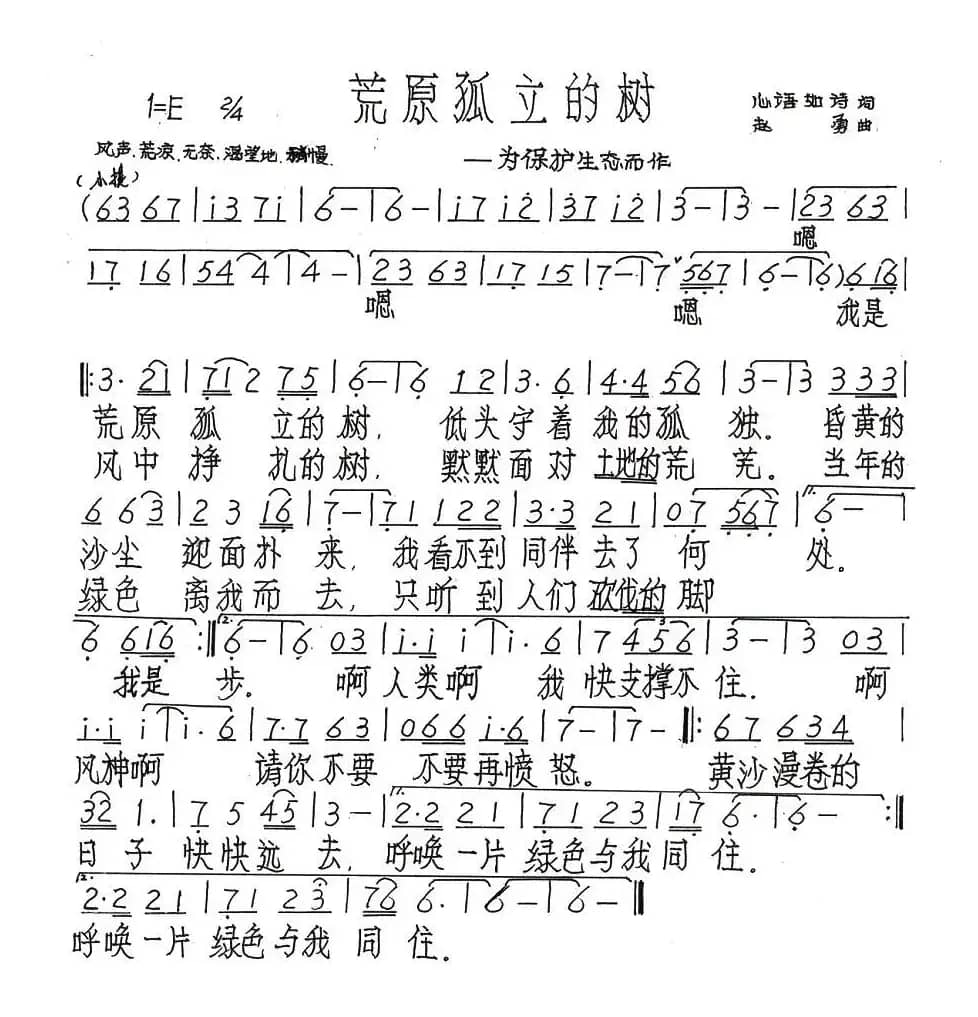 荒原孤立的树
1=E 2/4
心语如诗 词
赵勇 曲
——为保护生态而作
风声、荒凉、无奈、渴望地、稍慢
(小提)
(63 67 | i3 7i | 6 — | 6 — | i7 i2 | 37 i2 | 3 — | 3 — | 23 63 |
嗯
17 16 | 54 4 | 4 — | 23 63 | 17 15 | 7 — | 7 567 | 6 — | 6) 6 16 |
嗯 嗯 我是
‖: 3· 21 | 71 2 75 | 6 — | 6 12 | 3· 6 | 4·4 56 | 3 — | 3 333 |
荒原孤 立的树, 低头守着我的孤 独。昏黄的
风中挣 扎的树, 默默面对土地的荒 芜。当年的
6 63 | 23 16 | 7 — | 71 122 | 3·3 21 | 07 567 | 1. 6 — |
沙尘 迎面扑 来, 我看不到同伴去了 何 处。
绿色 离我而 去, 只听到人们砍伐的脚
6 616 :‖ 2. 6 — | 6 03 | i·i i | i· 6 | 7 456 | 3 — | 3 03 |
我是 步。 啊人类啊 我快支撑不 住. 啊
i·i i | i· 6 | 7·7 63 | 066 i·6 | 7 — | 7 — ‖: 67 634 |
风神啊 请你不要 不要再愤 怒。 黄沙漫卷的
32 1. | 7 5 45 | 3 — | 1. 2·2 21 | 71 23 | 17 6· | 6 — :‖
日子 快快远 去, 呼唤一片绿色与我同 住.
2. 2·2 21 | 71 23 | 76 6· | 6 — | 6 — ‖
呼唤一片绿色与我 同 住.